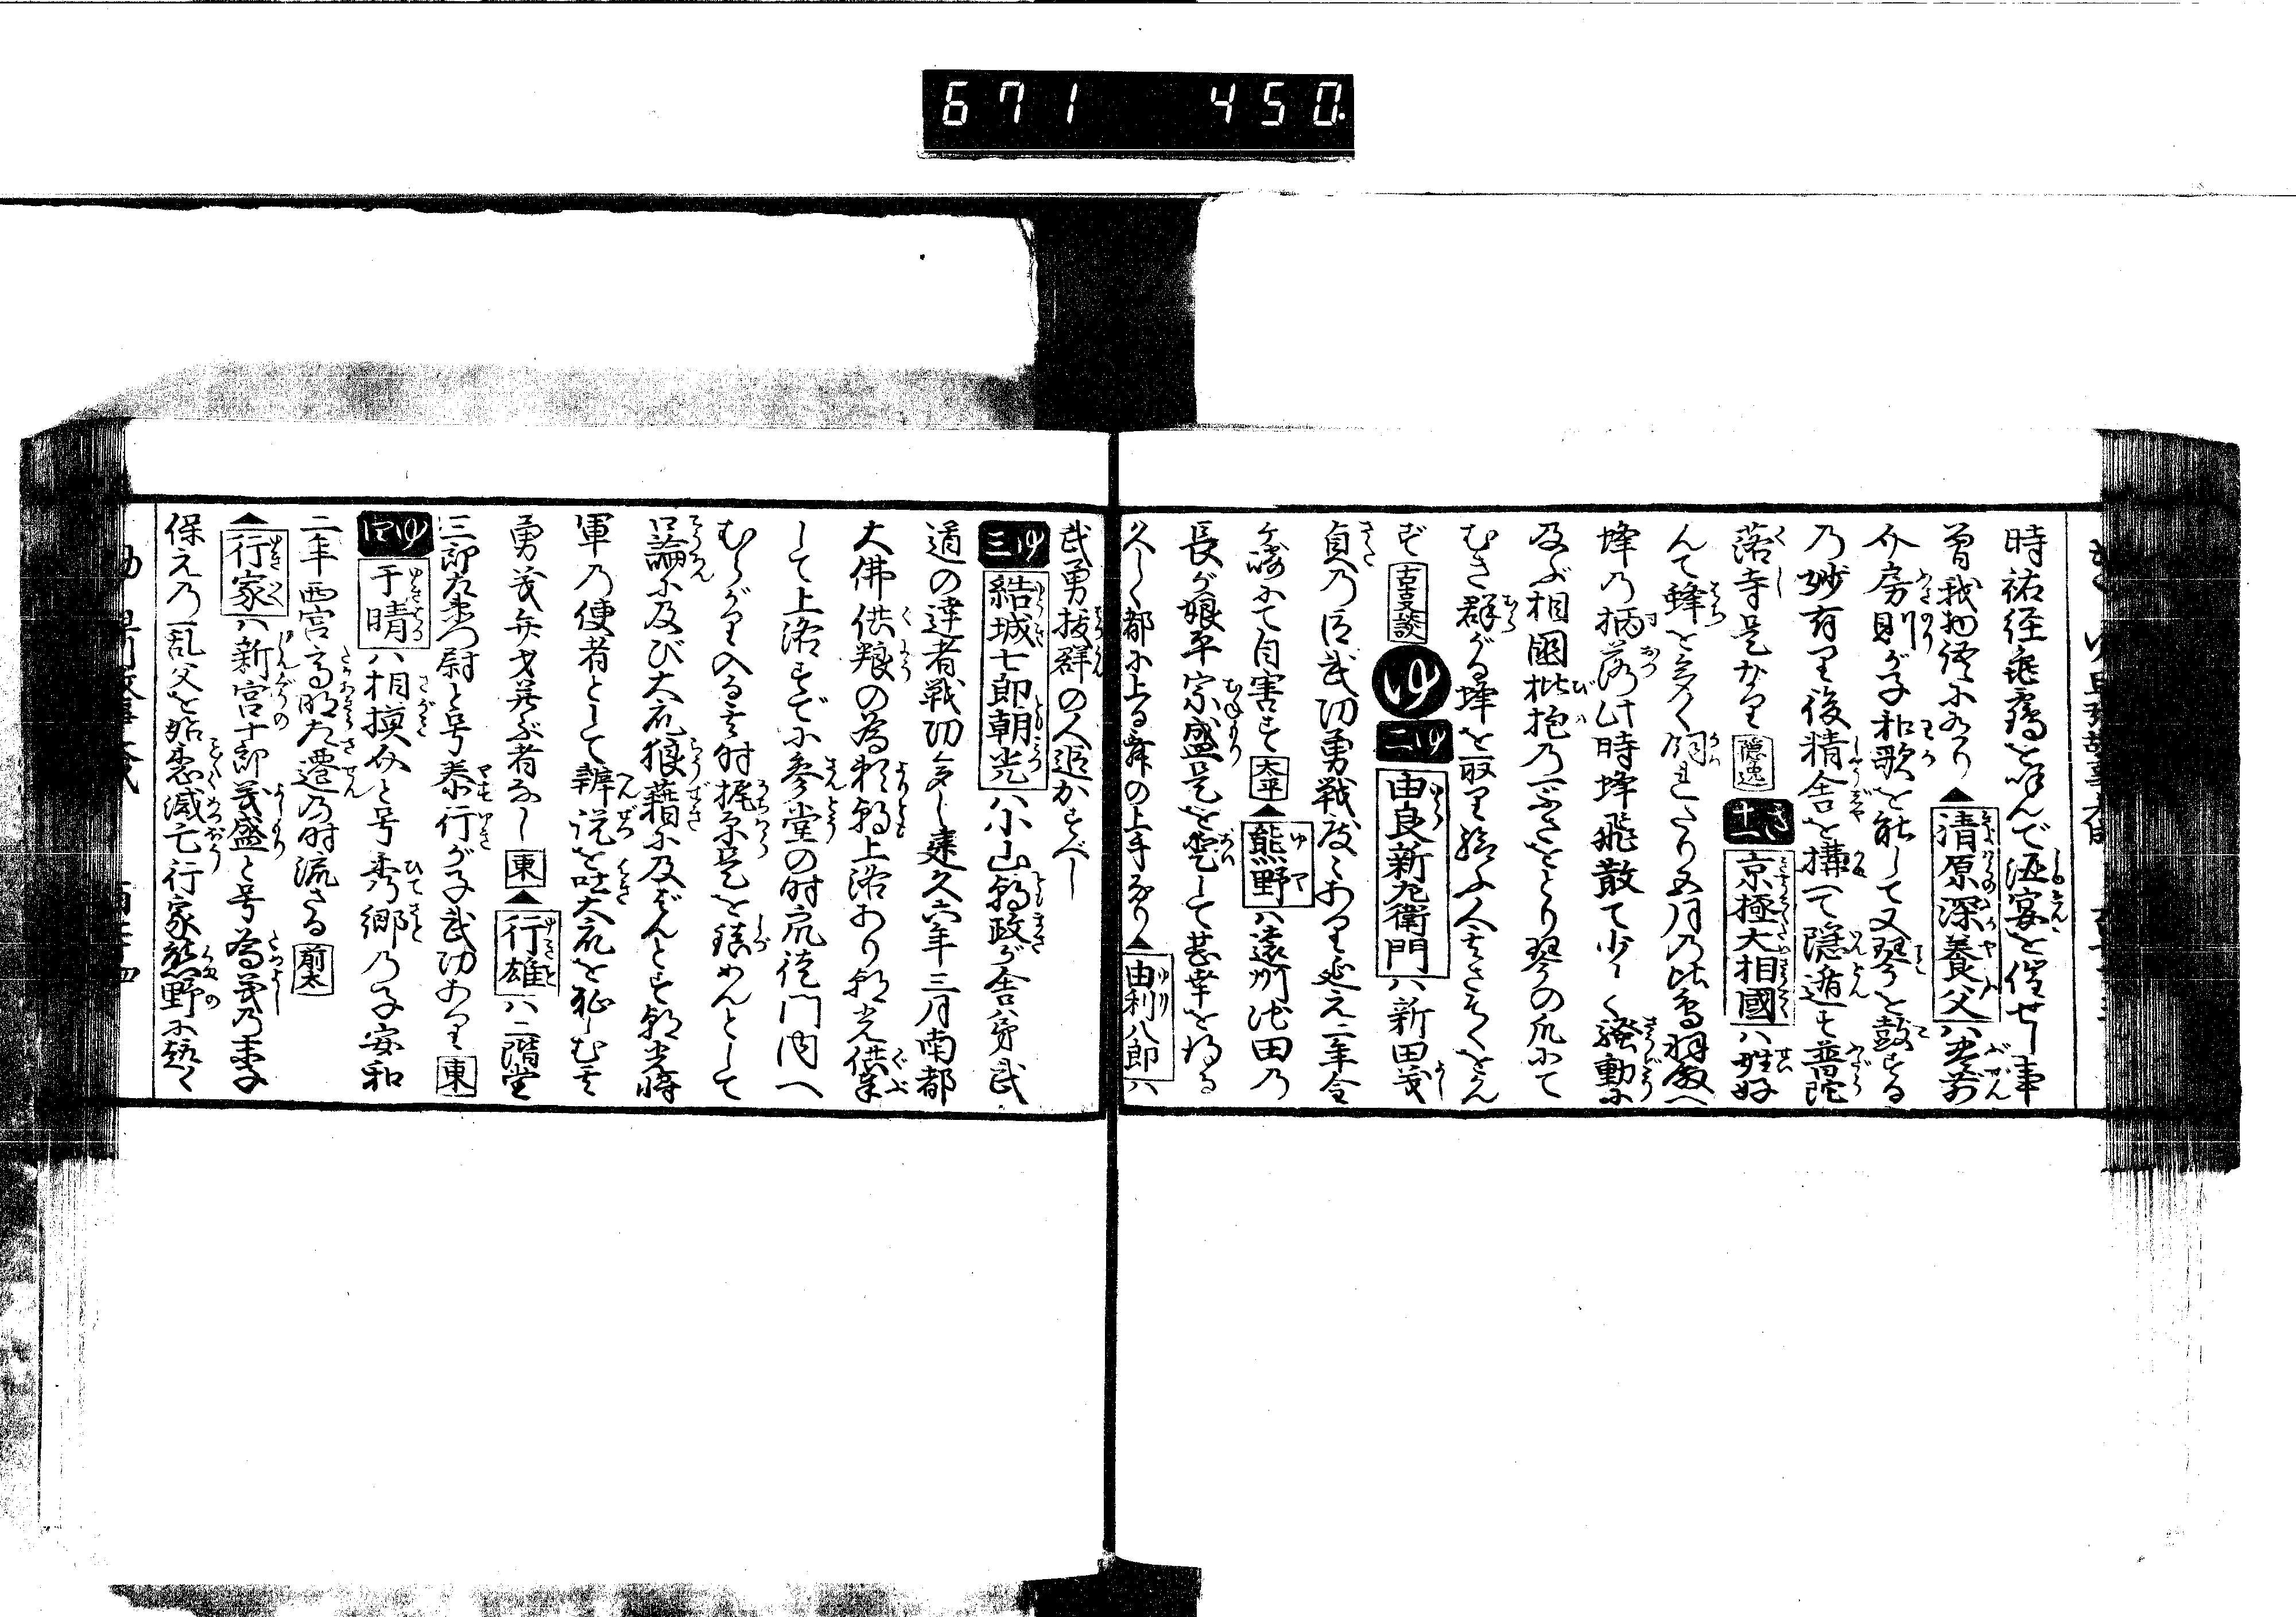 671 450
時祐経亀鶴を呼んで酒宴を催せし事
曽我物語にあり▲清原深養父ハ豊前
介房則が子和歌を能して又琴を鼓する
乃妙有り後精舎を搆へて隠遁す普陀
落寺是なり 隠逸 き十一 京極大相國ハ性好
んで蜂を多く飼れたり五月乃比鳥羽殿へ
蜂乃栖落此時蜂飛散て少しく騒動に
及ぶ相國枇杷乃一ふさをとり琴の爪にて
むき群がる蜂を取り給ふ人其さそくをかん
ず 古事談 ゆ ゆ二 由良新左衛門ハ新田義
貞乃臣武功勇戦度々あり延元二年金
ヶ崎にて自害す 太平▲熊野ハ遠州池田乃
長が娘平宗盛是を愛して甚幸を得る
久しく都に上る舞の上手なり▲由利八郎ハ
武勇抜群の人近かすべし
ゆ三 結城七郎朝光ハ小山朝政が舎弟武
道の達者戦功多し建久六年三月南都
大佛供粮の為頼朝上洛あり朝光供奉
して上洛すでに参堂の時衆徒門内へ
むらがり入る其時梶原是を鎮めんとして
口論に及び大衆狼藉に及ばんとす朝光将
軍乃使者として辨説を吐大衆を恥しむ其
勇義弁才並ぶ者なし 東▲行雄ハ二階堂
三郎左衛門尉と号泰行が子武功あり 東
ゆ四 千晴ハ相摸介と号秀郷乃子安和
二年西宮高明左遷乃時流さる 前太
▲行家ハ新宮十郎義盛と号為義乃季子
保元乃乱父を始悉滅亡行家熊野に趣く